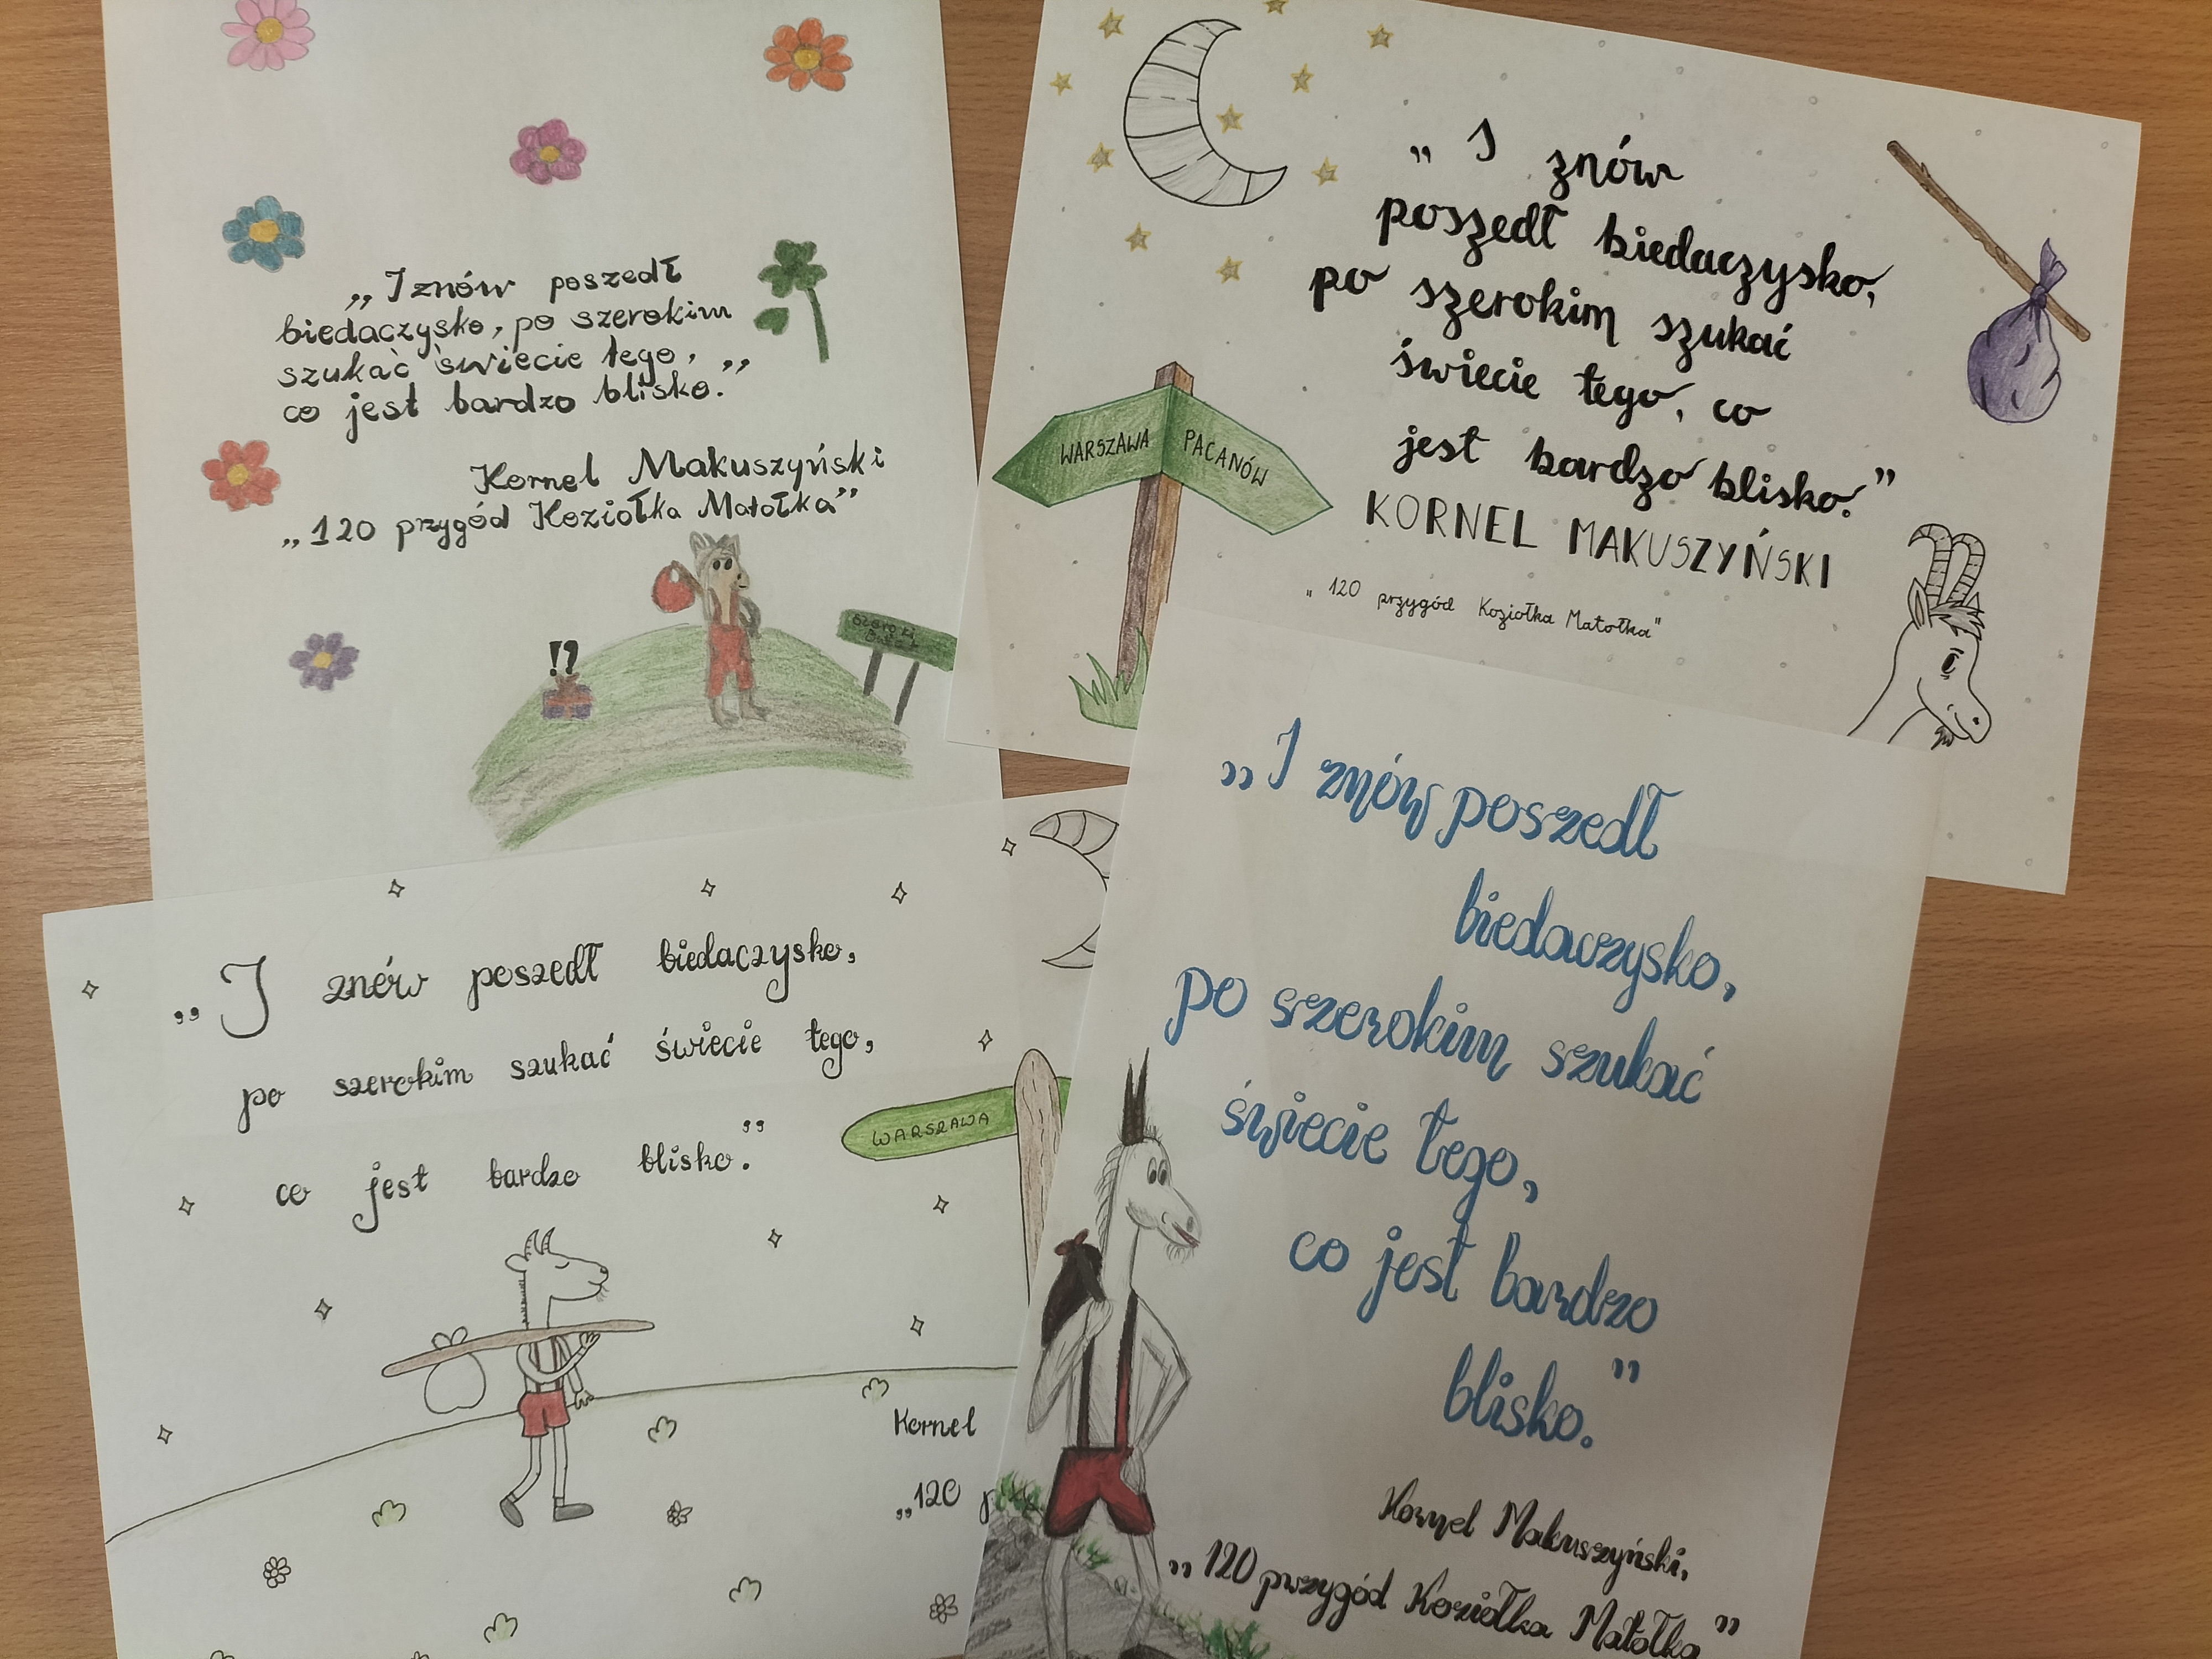 „I znów poszedł
biedaczysko, po szerokim
szukać świecie tego,
co jest bardzo blisko.”
Kornel Makuszyński
„120 przygód Koziołka Matołka”
!?
„I znów
poszedł biedaczysko,
po szerokim szukać
świecie tego, co
jest bardzo blisko.”
KORNEL MAKUSZYŃSKI
„120 przygód Koziołka Matołka”
WARSZAWA
PACANÓW
„I znów poszedł biedaczysko,
po szerokim szukać świecie tego,
co jest bardzo blisko.”
WARSZAWA
Kornel
„120 p
„I znów poszedł
biedaczysko,
po szerokim szukać
świecie tego,
co jest bardzo
blisko.”
Kornel Makuszyński,
„120 przygód Koziołka Matołka”